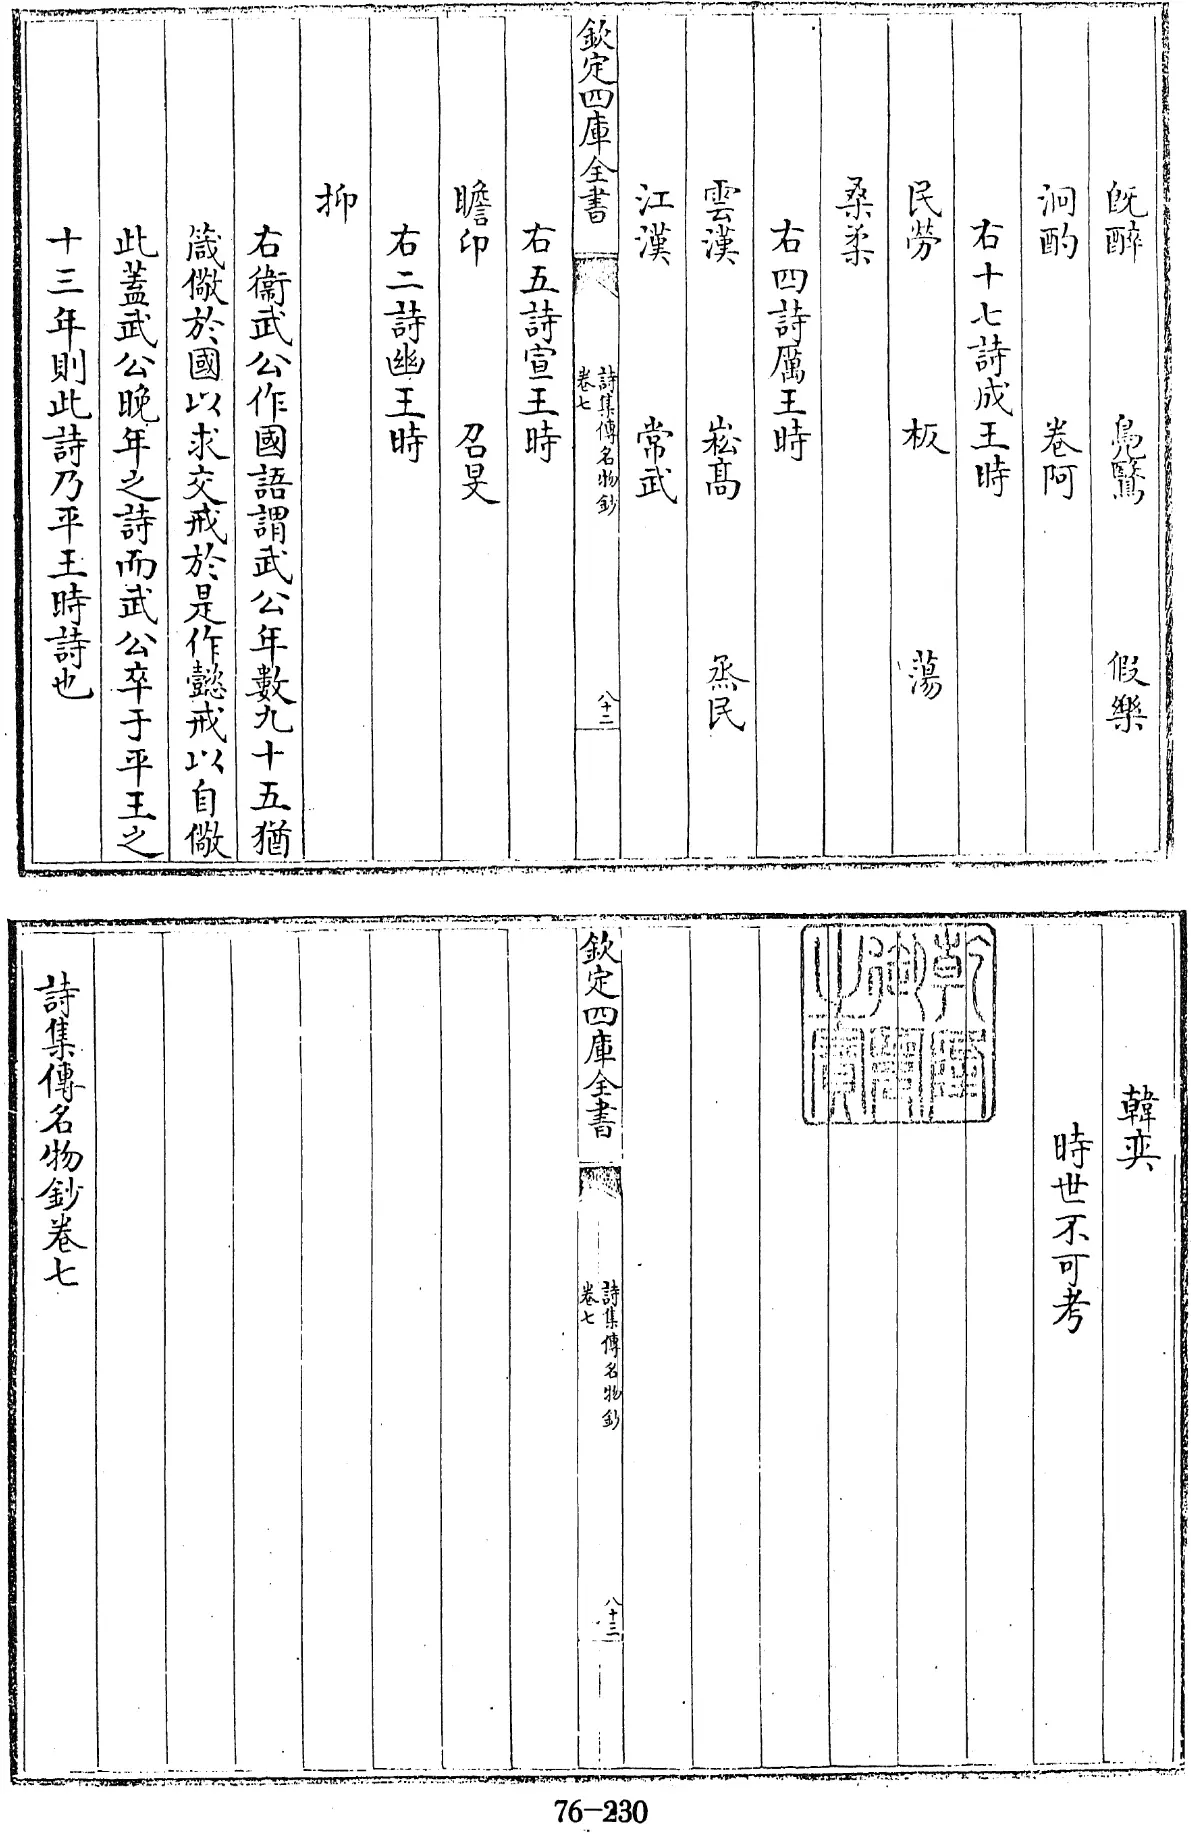 旣醉 鳧鷖 假樂
泂酌 卷阿
右十七詩成王時
民勞 板 蕩
桑柔
右四詩厲王時
雲漢 崧高 烝民
江漢 常武
欽定四庫全書
詩集傳名物鈔
卷七
八十二
右五詩宣王時
瞻卬 召旻
右二詩幽王時
抑
右衞武公作國語謂武公年數九十五猶
箴儆於國以求交戒於是作懿戒以自儆
此蓋武公晚年之詩而武公卒于平王之
十三年則此詩乃平王時詩也
韓奕
時世不可考
乾隆御覽之寶
欽定四庫全書
詩集傳名物鈔
卷七
八十三
詩集傳名物鈔卷七
76-230